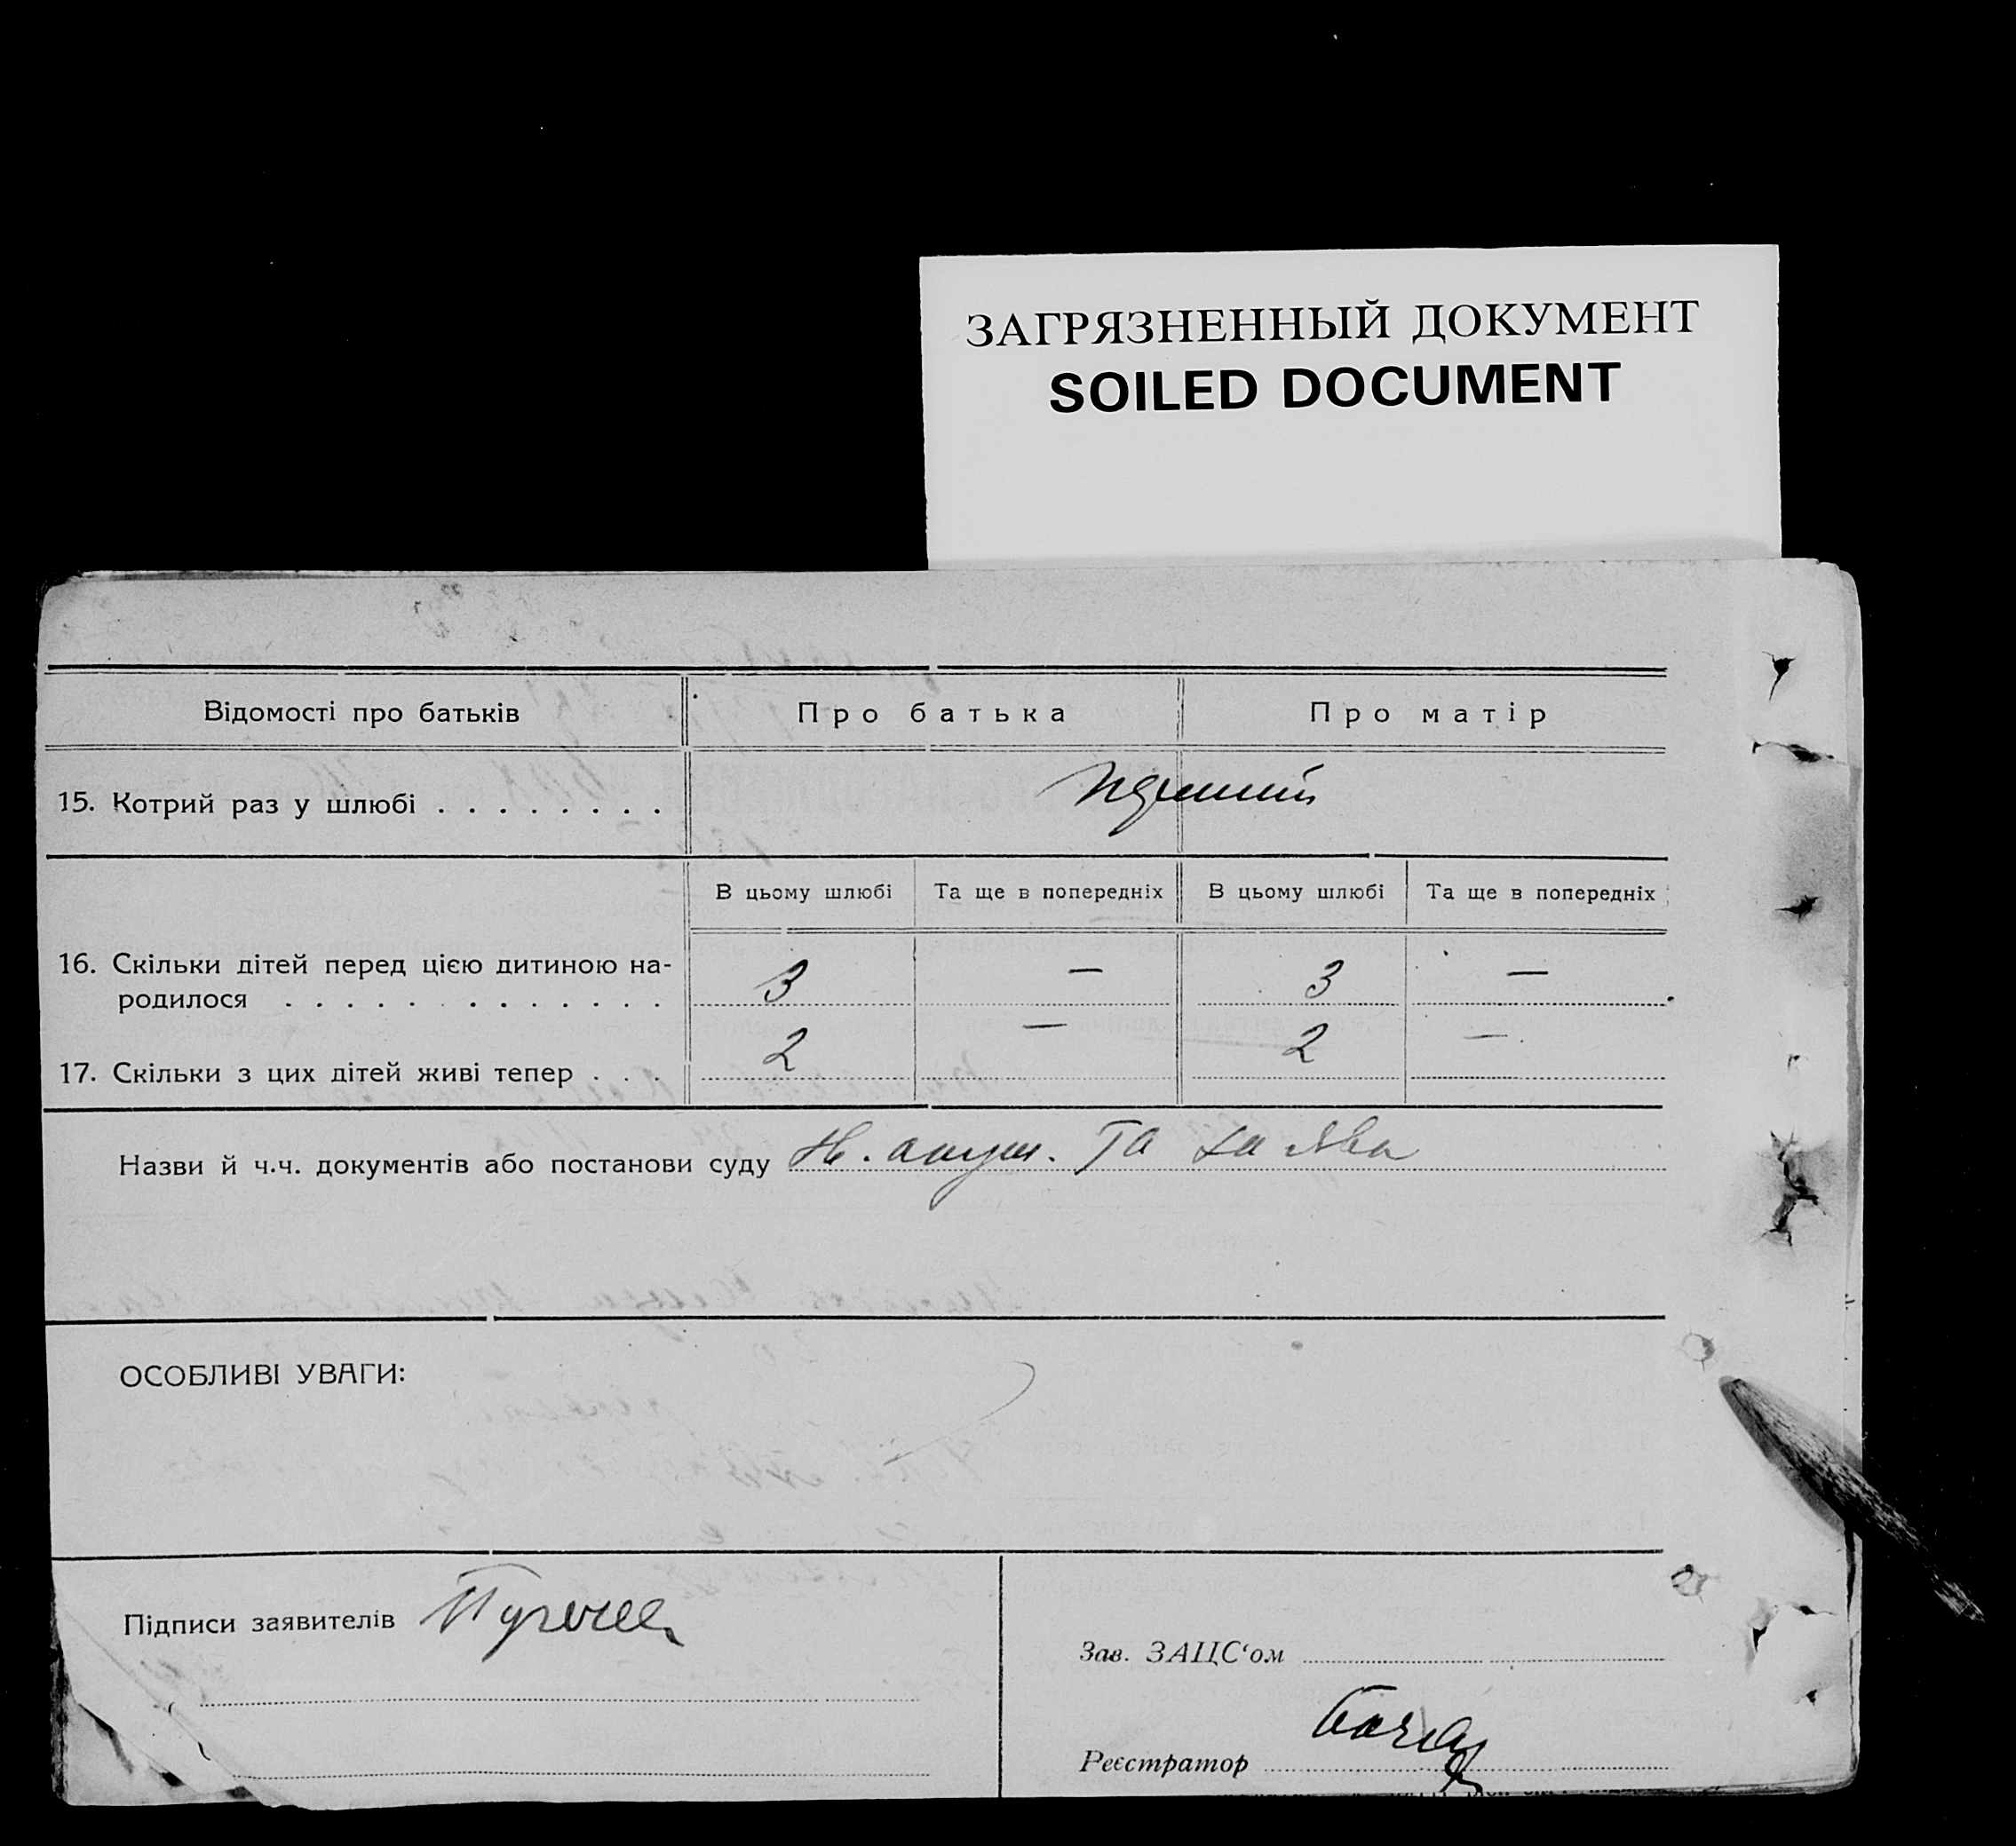 ЗАГРЯЗНЕННЫЙ ДОКУМЕНТ
SOILED DOCUMENT
Відомості про батьків Про батька Про матір
15. Котрий раз у шлюбі . . . . . . . .
В цьому шлюбі Та ще в попередніх В цьому шлюбі Та ще в попередніх
16. Скільки дітей перед цією дитиною на-
родилося . . . . . . . . . . . . . 3 — 3 —
17. Скільки з цих дітей живі тепер . . . 2 — 2 —
Назви й ч.ч. документів або постанови суду та заява
ОСОБЛИВІ УВАГИ:
Підписи заявителів
Зав. ЗАЦС‘ом
Реєстратор